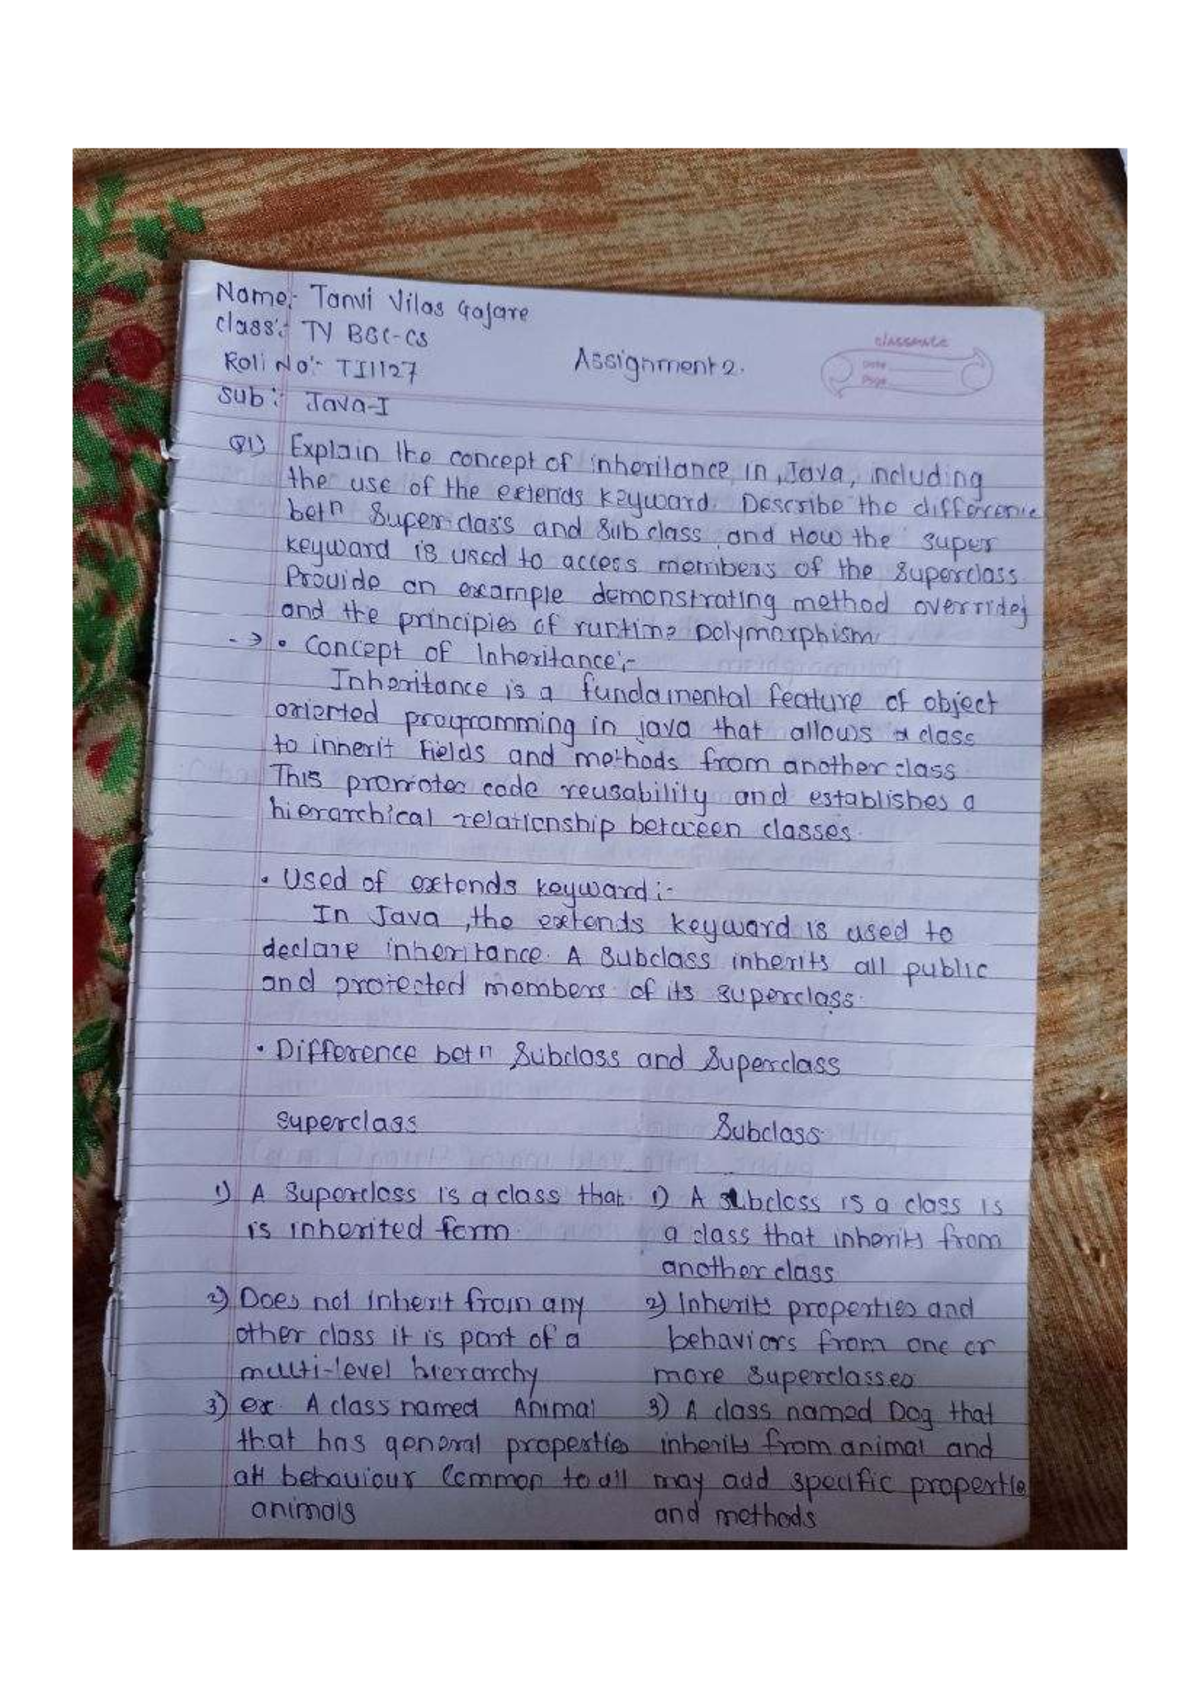 Name:- Tanvi Vilas Gajare
class:- TY BSC-CS
Roll No:- TI1127
Assignment 2.
classmate
Date
Page
Sub:- Java-I
Q1) Explain the concept of inheritance in Java, including
the use of the extends keyward. Describe the difference
betn Superclass and Subclass and How the super
keyward is used to access members of the superclass
Provide an example demonstrating method override
and the principles of runtime polymorphism
-> • Concept of Inheritance:-
Inheritance is a fundamental feature of object
oriented programming in java that allows a class
to inherit fields and methods from another class.
This promotes code reusability and establishes a
hierarchical relationship between classes.
• Used of extends keyward:-
In Java, the extends keyward is used to
declare inheritance. A Subclass inherits all public
and protected members of its superclass.
• Difference betn Subclass and Superclass
Superclass Subclass
1) A Superclass is a class that 1) A subclass is a class is
is inherited form. a class that inherits from
another class
2) Does not inherit from any 2) Inherits properties and
other class it is part of a behaviors from one or
multi-level hierarchy more superclasses
3) ex. A class named Animal 3) A class named Dog that
that has general propertie inherits from animal and
behaviour Common to all may add specific propertie
animals and methods